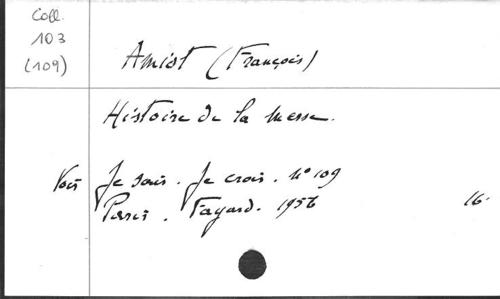 Coll.
103
(109)
Amiot (François)
Histoire de la messe.
Voir Je sais. Je crois. N° 109
Paris. Fayard. 1956 16.